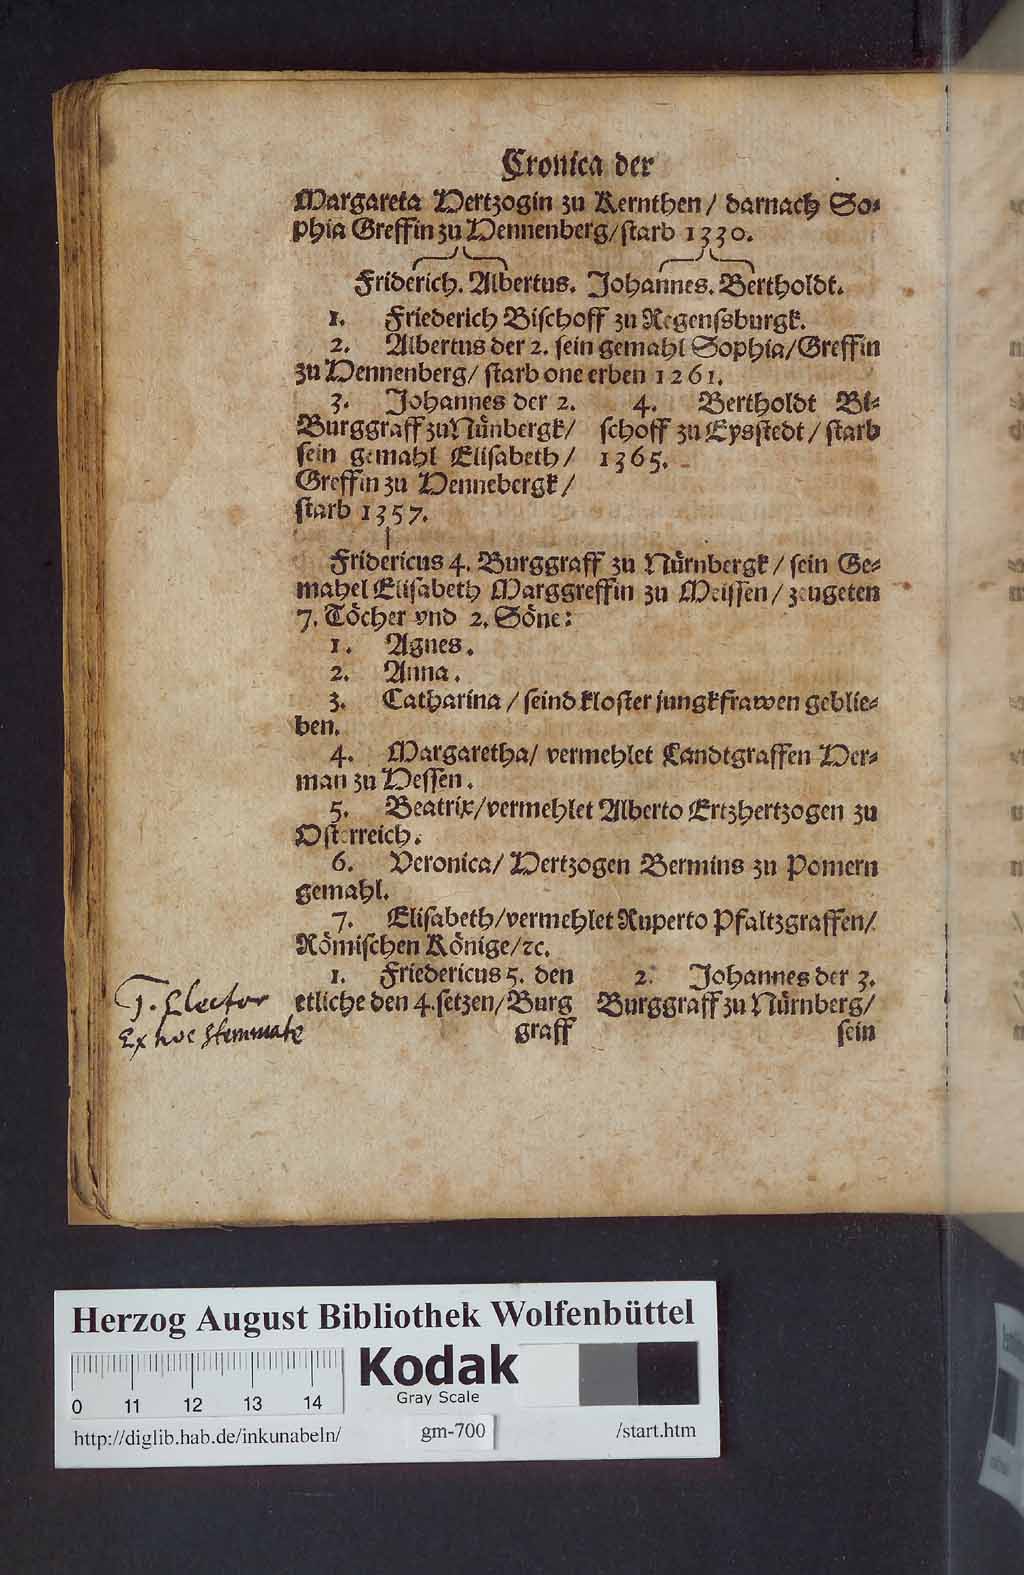 Cronica der
Margareta Hertzogin zu Kernthen / darnach So⸗
phia Greffin zu Hennenberg/ starb 1330.
Friderich. Albertus. Johannes. Bertholdt.
1. Friederich Bischoff zu Regenssburgk.
2. Albertus der 2. sein gemahl Sophia/ Greffin
zu Hennenberg/ starb one erben 1261.
3. Johannes der 2.
Burggraff zu Nünbergk/
sein gemahl Elisabeth /
Greffin zu Hennebergk /
starb 1357.
4. Bertholdt Bi⸗
schoff zu Eysstedt / starb
1365.
Fridericus 4. Burggraff zu Nürnbergk / sein Ge⸗
mahel Elisabeth Marggreffin zu Meissen / zeugeten
7. Töcher vnd 2. Söne:
1. Agnes.
2. Anna.
3. Catharina / seind kloster jungkfrawen geblie⸗
ben.
4. Margaretha/ vermehlet Landtgraffen Her⸗
man zu Hessen.
5. Beatrix/ vermehlet Alberto Ertzhertzogen zu
Osterreich.
6. Veronica/ Hertzogen Bermins zu Pomern
gemahl.
7. Elisabeth/ vermehlet Ruperto Pfaltzgraffen/
Römischen Könige/ ꝛc.
1. Friedericus 5. den
etliche den 4. setzen/ Burg
graff
2. Johannes der 3.
Burggraff zu Nürnberg/
sein
Elector
Ex hoc stemmate
Herzog August Bibliothek Wolfenbüttel
Kodak
Gray Scale
0 11 12 13 14
http://diglib.hab.de/inkunabeln/ gm-700 /start.htm